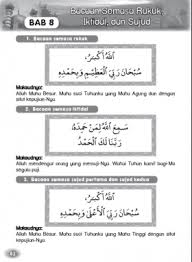 BAB 8
Bacaan Semasa Rukuk,
Iktidal, dan Sujud
1. Bacaan semasa rukuk
اَللّٰهُ أَكْبَرُ،
سُبْحَانَ رَبِّيَ الْعَظِيْمِ وَبِحَمْدِهِ
Maksudnya:
Allah Maha Besar. Maha suci Tuhanku yang Maha Agung dan dengan
sifat kepujian-Nya.
2. Bacaan semasa iktidal
سَمِعَ اللّٰهُ لِمَنْ حَمِدَهُ
رَبَّنَا لَكَ الْحَمْدُ
Maksudnya:
Allah mendengar orang yang memuji-Nya. Wahai Tuhan kami! bagi-Mu
segala puji.
3. Bacaan semasa sujud pertama dan sujud kedua
اَللّٰهُ أَكْبَرُ،
سُبْحَانَ رَبِّيَ الْأَعْلَى وَبِحَمْدِهِ
Maksudnya:
Allah Maha Besar. Maha suci Tuhanku yang Maha Tinggi dan dengan sifat
kepujian-Nya.